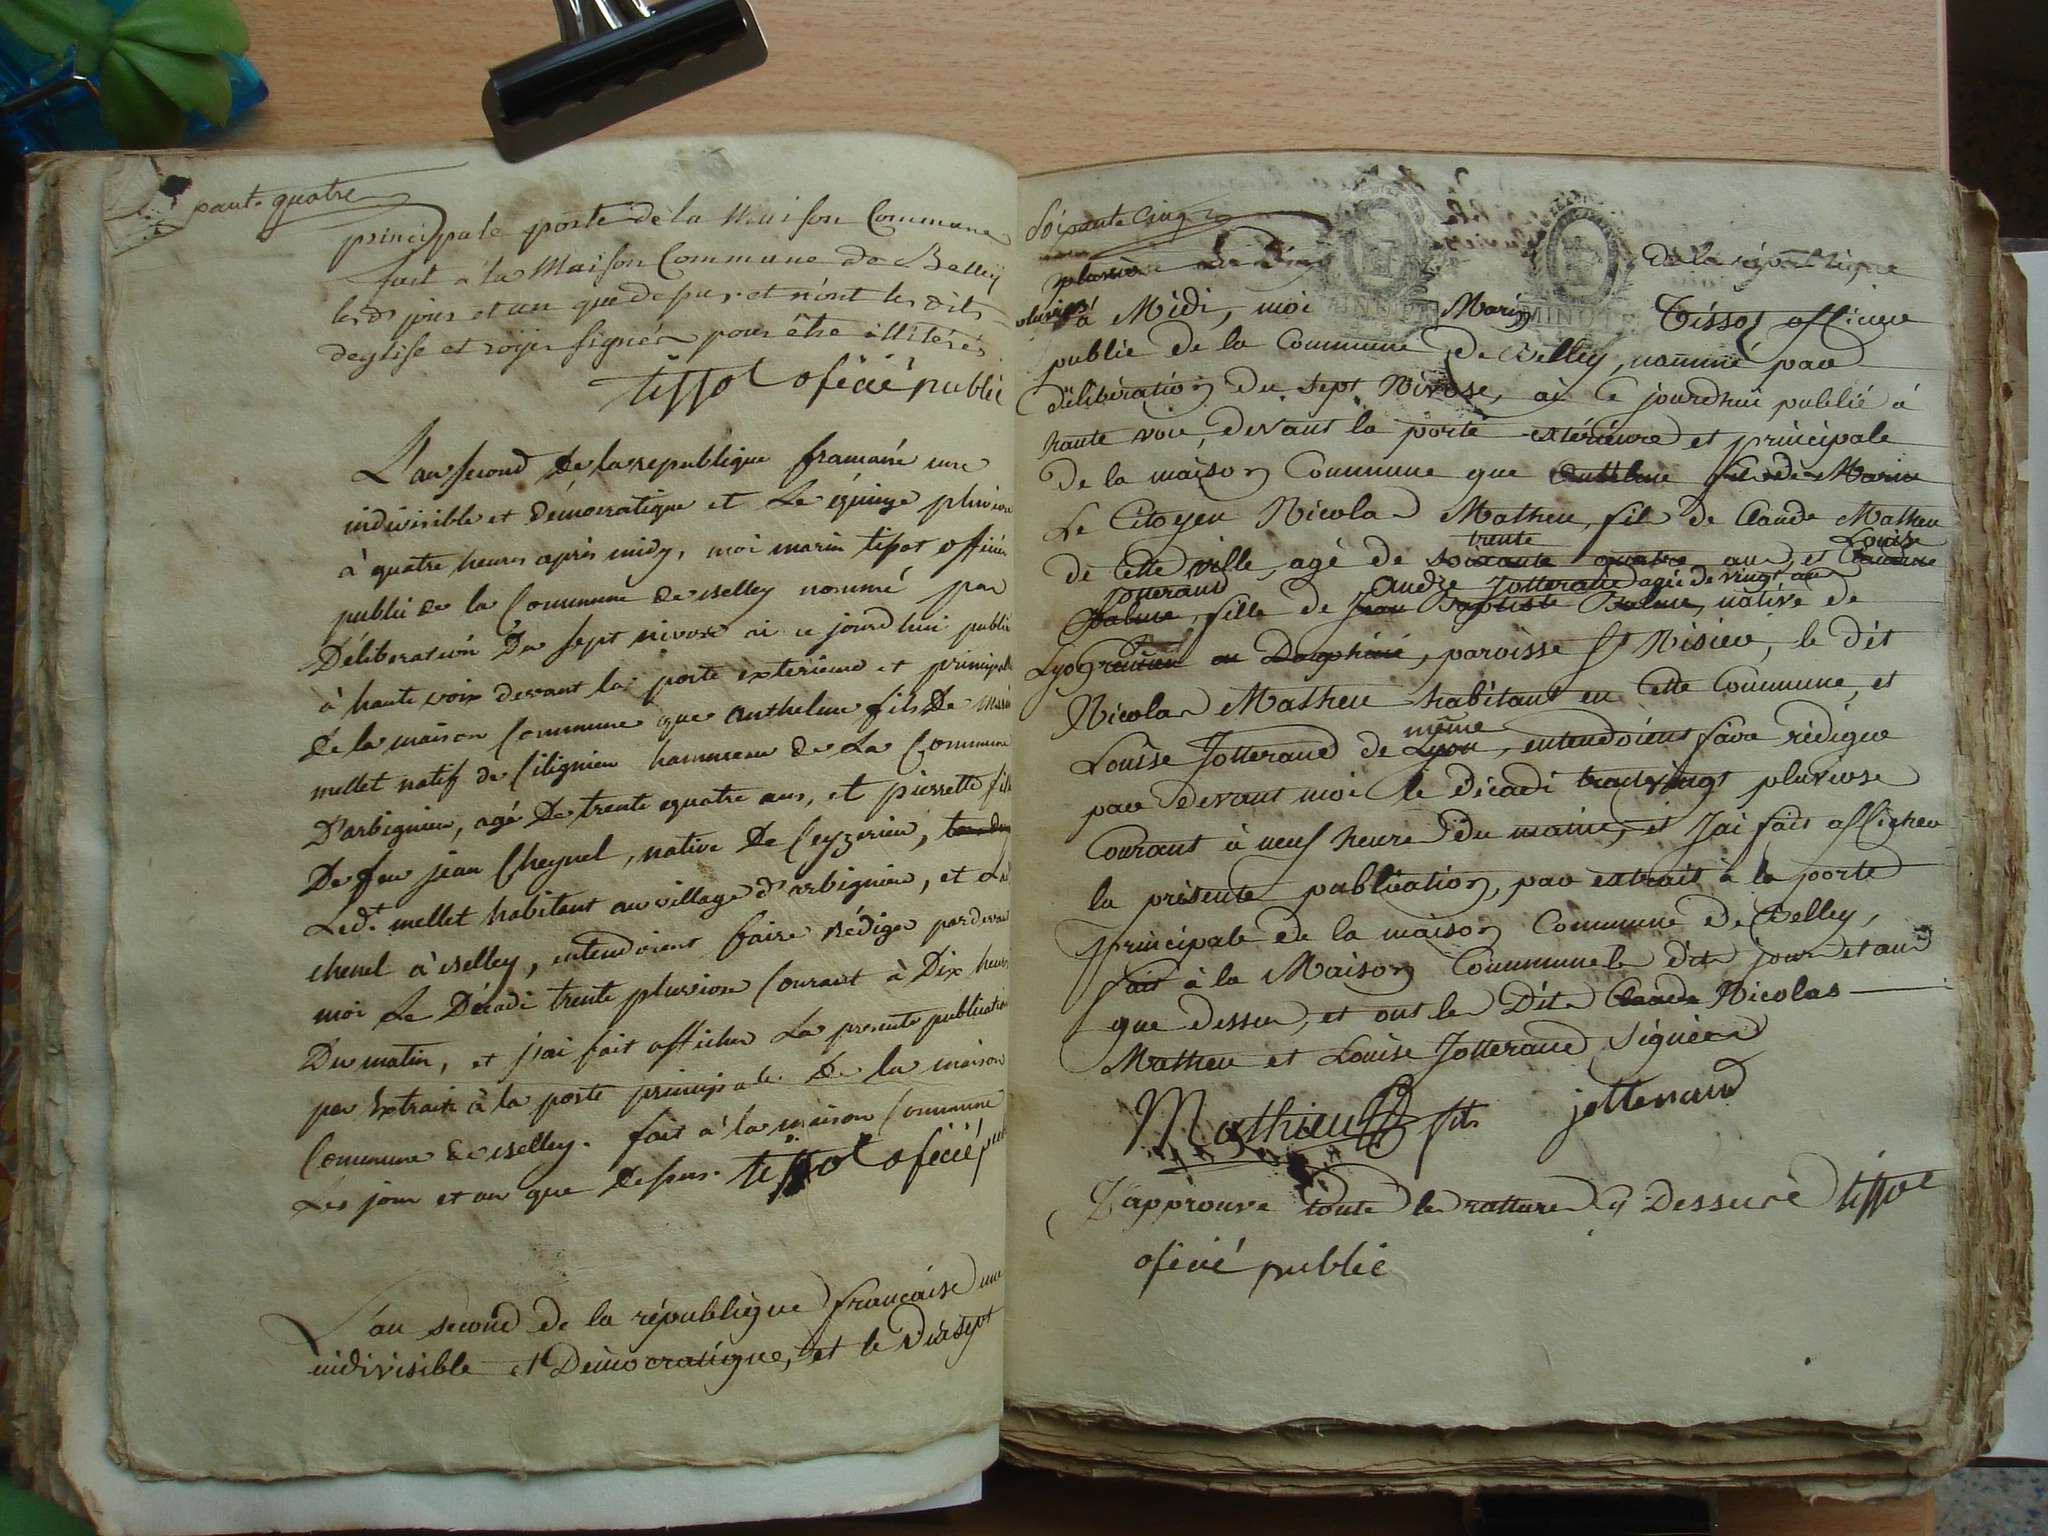 pante quatre
principale porte de la Maison Commune
fait à la Maison Commune de Belley
les d. jour et an que dessus et n'ont les dits
deglise et royer signés pour être illitérés
tissot oficié public
L'an second de la republique francaise une
indivisible et démocratique et Le quinze pluviose
à quatre heures après midy, moi marin tissot officier
public de la Commune de Belley nommé par
Déliberation Du sept nivose ai ce jourd'hui publié
à haute voix devant la porte exterieure et principale
de la maison Commune que anthelme fils De marin
mellet natif de hammeau de La Commune
D'arbignieu, agé De trente quatre ans, et pierrette fille
De feu jean Cheynel, native De Ceyzerieu,
Led.t mellet habitant au village d'arbignieu, et La
chenel à Belley, entendoient faire rédiger pardevant
moi Le Décadi trente pluviose Courant à Dix heures
Du matin, et j'ai fait afficher La presente publication
par Extrait à la porte principale De la maison
Commune de Belley. fait à la maison Commune
Les jour et an que dessus. tissot oficié pub
L'an second de la république francaise une
indivisible et Démocratique, et le Dixsept
Soixante Cinq
de la république
pluviose à Midi, moi Marin Tissot officier
MINUTE
public de la Commune de Belley, nommé par
délibération du sept Nivose, ai ce jourdhui publié à
haute voie, devant la porte extérieure et principale
de la maison Commune que Anthelme fils de Marin
Le Citoyen Nicolas Mathieu, fils de Claude Mathieu
trente Louise
de cette ville, agé de soixante quatre ans, et Claudine
Jotterand André Jotterand agée de vingt ans
Balme, fille de Jean Baptiste Balme, native de
Lyon en Dauphiné, paroisse St Nisier, le dit
Nicolas Mathieu habitant en cette Commune, et
même
Louise Jotterand de Lyon, entendoient faire rédiger
par devant moi le décadi trente vingt pluviose
Courant à neuf heures du matin, et J'ai fait afficher
la présente publication, par extrait à la porte
principale de la maison Commune de Belley,
fait à la Maison Commune le dits jour et an
que dessus, et ont les Dits Claude Nicolas
Mathieu et Louise Jotterand signés
Mathieu fils jotterand
J'approuve toute les ratture cy Dessure tissot
oficié public